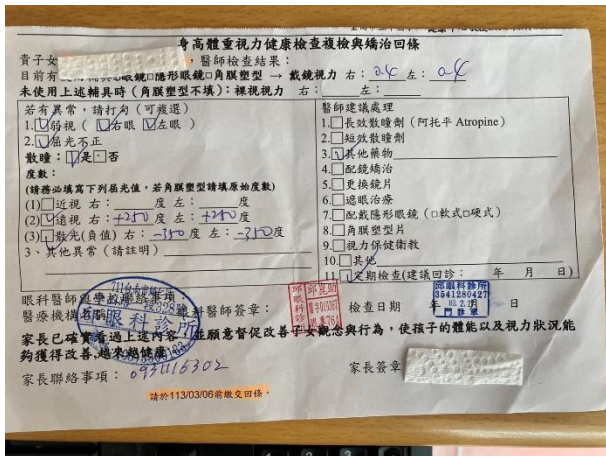 身高體重視力健康檢查複檢與矯治回條
貴子女 醫師檢查結果：
目前有 眼鏡□隱形眼鏡□角膜塑型 → 戴鏡視力 右：0.4 左：0.4
未使用上述輔具時（角膜塑型不填）：裸視視力 右： 左：
若有異常，請打勾（可複選）
1.☑弱視（☑右眼 ☑左眼）
2.☑屈光不正
散瞳：☑是□否
度數：
(請務必填寫下列屈光值，若角膜塑型請填原始度數)
(1)□近視 右： 度 左： 度
(2)☑遠視 右：+250 度 左：+250 度
(3)☑散光(負值) 右：-350 度 左：-350 度
3、其他異常（請註明）
醫師建議處理
1.□長效散瞳劑（阿托平 Atropine）
2.□短效散瞳劑
3.☑其他藥物
4.□配鏡矯治
5.□更換鏡片
6.□遮眼治療
7.□配戴隱形眼鏡（□軟式□硬式）
8.□角膜塑型片
9.□視力保健衛教
10.□其他
11.☑定期檢查(建議回診： 年 月 日)
眼科醫師與學校聯絡事項
醫療機構名稱： 眼科醫師簽章： 檢查日期 年 日
眼科診所
邱眼科診所
3541280427
門診章
家長已確實看過上述內容，並願意督促改善子女觀念與行為，使孩子的體能以及視力狀況能
夠獲得改善,越來越健康
家長聯絡事項：0931116302 家長簽章
請於113/03/06前繳交回條。